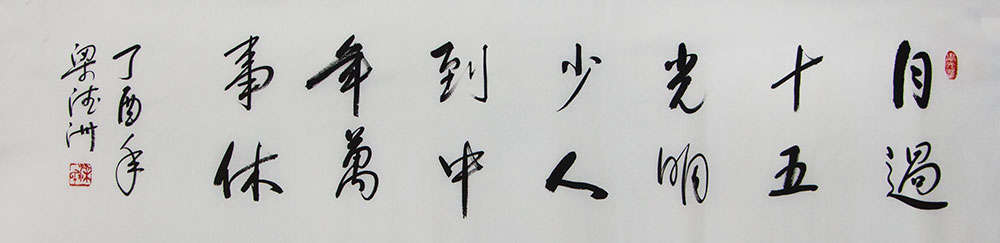 月過
十五
光明
少人
到中
年萬
事休
丁酉年
梁洲